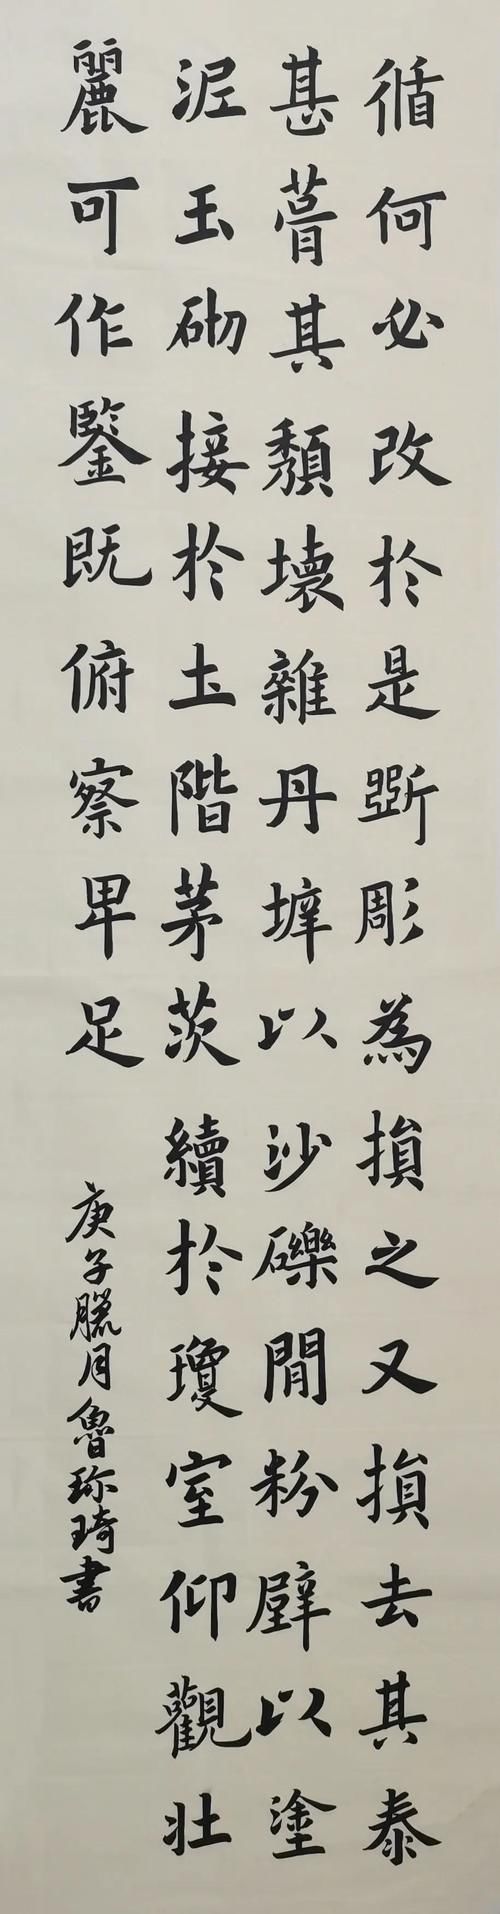 循何必改於是斲彫為損之又損去其泰
甚葺其頹壞雜丹墀以沙礫間粉壁以塗
泥玉砌接於土階茅茨續於瓊室仰觀壯
麗可作鑒既俯察卑足
庚子臘月魯珎琦書